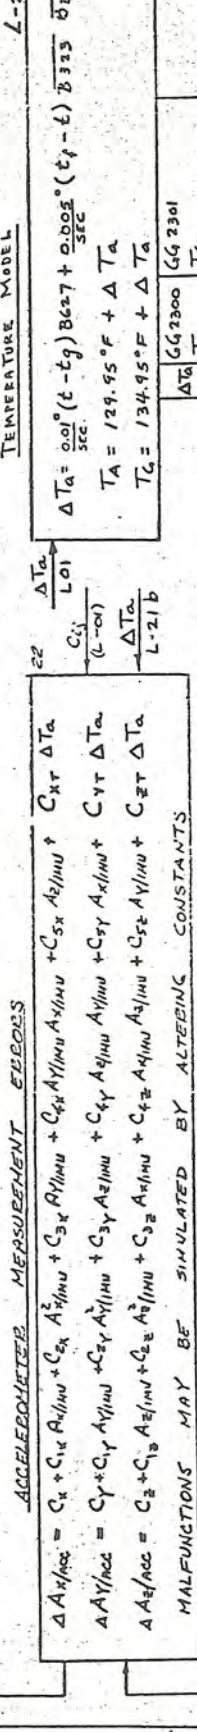 ACCELEROMETER MEASUREMENT ERRORS
ΔAx/ACC = Cx + C1x Ax/IMU + C2x A²x/IMU + C3x Ay/IMU + C4x Ay/IMU Ax/IMU + C5x Az/IMU + CXT ΔTa
ΔAY/ACC = CY + C1Y AY/IMU + C2Y A²Y/IMU + C3Y Az/IMU + C4Y Az/IMU AY/IMU + C5Y Ax/IMU + CYT ΔTa
ΔAz/ACC = Cz + C1z Az/IMU + C2z A²z/IMU + C3z Ax/IMU + C4z Ax/IMU Az/IMU + C5z AY/IMU + CZT ΔTa
MALFUNCTIONS MAY BE SIMULATED BY ALTERING CONSTANTS
22
ΔTa
L01
Cij
(L-01)
ΔTa
L-21b
TEMPERATURE MODEL
ΔTa = 0.01°/SEC. (t-tg) B627 + 0.005°/SEC (tf-t) B323
TA = 129.95°F + ΔTa
TG = 134.95°F + ΔTa
ΔTa GG2300 GG2301